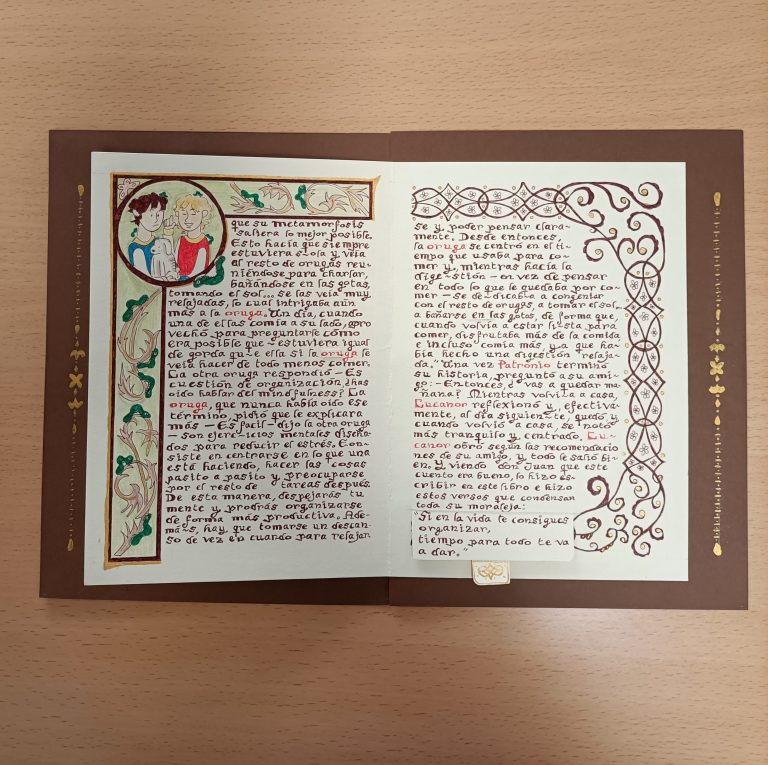 que su metamorfosis
saliera lo mejor posible.
Esto hacía que siempre
estuviera sola y veía
al resto de orugas reu-
niéndose para charlar,
bañándose en las gotas,
tomando el sol... se las veía muy
relajadas, lo cual intrigaba aún
más a la oruga. Un día, cuando
una de ellas comía a su lado, apro
vechó para preguntarle cómo
era posible que estuviera igual
de gorda que ella si la oruga le
veía hacer de todo menos comer.
La otra oruga respondió – Es
cuestión de organización ¿has
oído hablar del mindfulness? La
oruga, que nunca había oído ese
término, pidió que le explicara
más – Es fácil – dijo la otra oruga
– son ejercicios mentales diseña-
dos para reducir el estrés. Con-
siste en centrarse en lo que una
está haciendo, hacer las cosas
pasito a pasito y preocuparse
por el resto de tareas después.
De esta manera, despejarás tu
mente y prodrás organizarse
de forma más productiva. Ade-
más, hay que tomarse un descan-
so de vez en cuando para relajar
se y poder pensar clara-
mente. Desde entonces,
la oruga se centró en el ti-
empo que usaba para co-
mer y, mientras hacía la
digestión – en vez de pensar
en todo lo que le quedaba por co-
mer – se dedicaba a congeniar
con el resto de orugas, a tomar el sol,
a bañarse en las gotas, de forma que,
cuando volvía a estar lista para
comer, disfrutaba más de la comida
e incluso comía más, ya que ha-
bía hecho una digestión relaja-
da." Una vez Patronio terminó
su historia, preguntó a su ami-
go: – Entonces, ¿vas a quedar ma-
ñana? Mientras volvía a casa,
Lucanor reflexionó y, efectiva-
mente, al día siguiente, quedó y
cuando volvió a casa, se notó
más tranquilo y centrado. Lu-
canor obró según las recomendacio
nes de su amigo, y todo le salió bi-
en. Y viendo don Juan que este
cuento era bueno, lo hizo es-
cribir en este libro e hizo
estos versos que condensan
toda su moraleja:
"Si en la vida te consigues
organizar,
tiempo para todo te va
a dar."